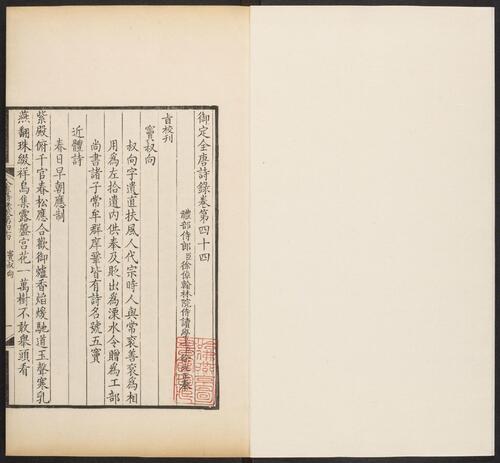 御定全唐詩錄卷第四十四
禮部侍郎臣徐倬翰林院侍讀學
旨校刊
竇叔向
叔向字遺直扶風人代宗時人與常衮善衮為相
用為左拾遺內供奉及貶出為溧水令贈為工部
尚書諸子常牟羣庠鞏皆有詩名號五竇
近體詩
春日早朝應制
紫殿俯千官春松應合歡御爐香焰煖馳道玉聲寒乳
燕翻珠綴祥烏集露盤宮花一萬樹不敢舉頭看
竇叔向
一